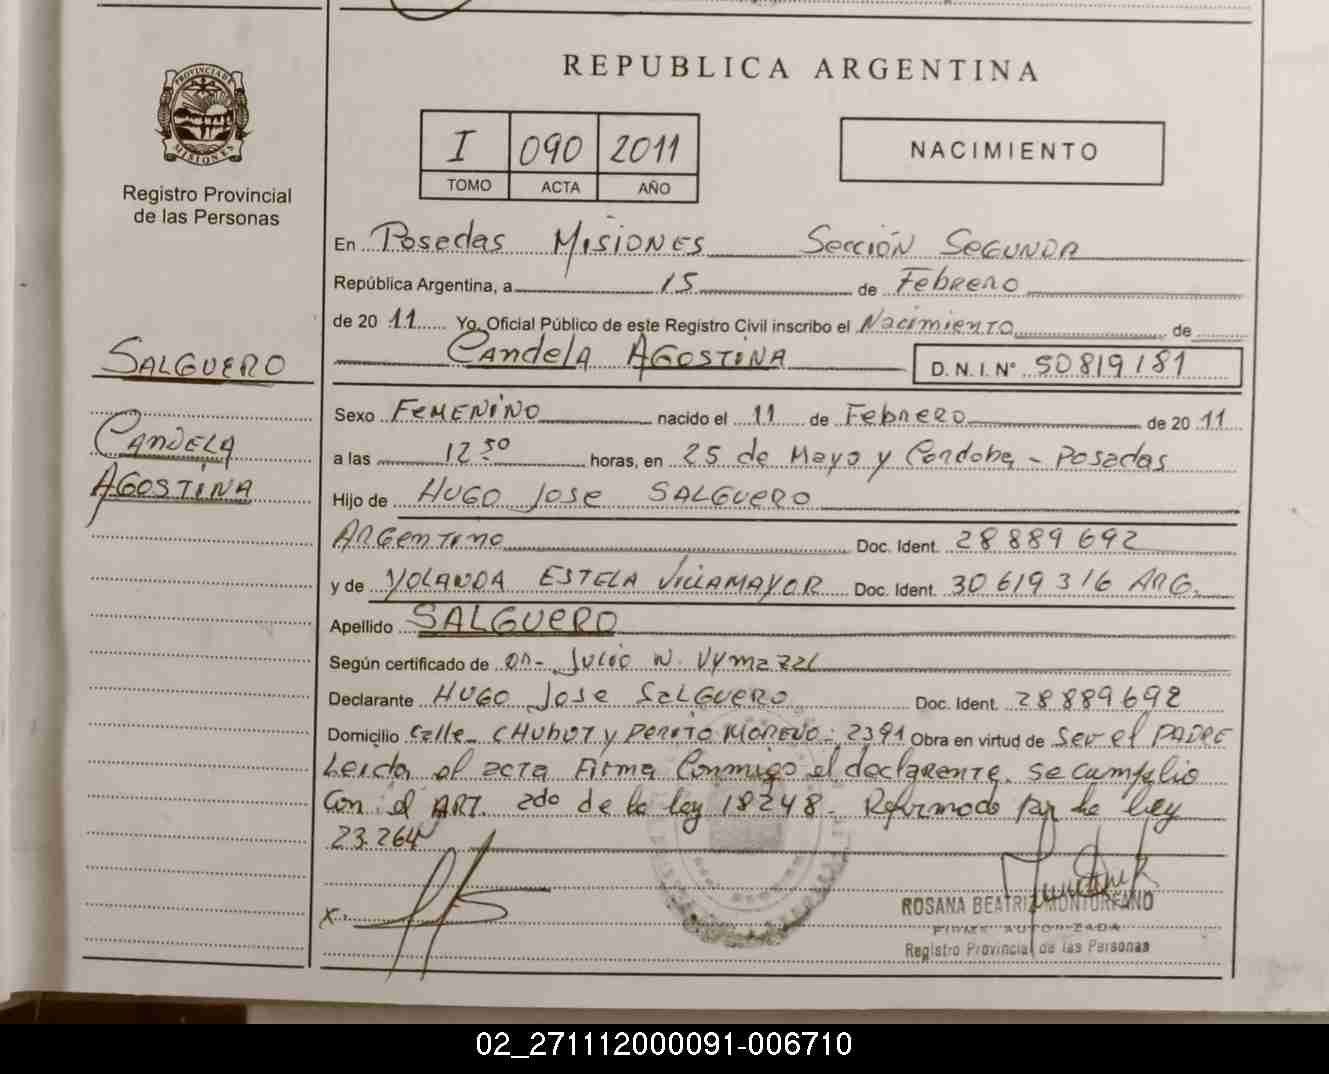 PROVINCIA DE
MISIONES
Registro Provincial
de las Personas
SALGUERO
CANDELA
AGOSTINA
REPUBLICA ARGENTINA
I 090 2011
TOMO ACTA AÑO
NACIMIENTO
En Posedas MISIONES Sección SEGUNDA
República Argentina, a 15 de Febrero
de 20 11 Yo, Oficial Público de este Registro Civil inscribo el Nacimiento de
Candela AGOSTINA D.N.I. N° 50819181
Sexo FEMENINO nacido el 11 de Febrero de 20 11
a las 12 30 horas, en 25 de Mayo y Cordoba - Posadas
Hijo de HUGO Jose SALGUERO
ARGENTINO Doc. Ident. 28889692
y de YOLANDA ESTELA VILLAMAYOR Doc. Ident. 30619316 ARG.
Apellido SALGUERO
Según certificado de DR- JULIO N. Vymazal
Declarante HUGO Jose SALGUERO Doc. Ident. 28889692
Domicilio Calle CHUBUT y PERITO MORENO- 2391 Obra en virtud de Ser el PADRE
Leida el acta Firma Conmigo el declarente. Se cumplio
Con el ART. 2do de la ley 18248- Reformado por la ley
23.264
X
ROSANA BEATRIZ MONTORFANO
FIRMA AUTORIZADA
Registro Provincial de las Personas
02_271112000091-006710